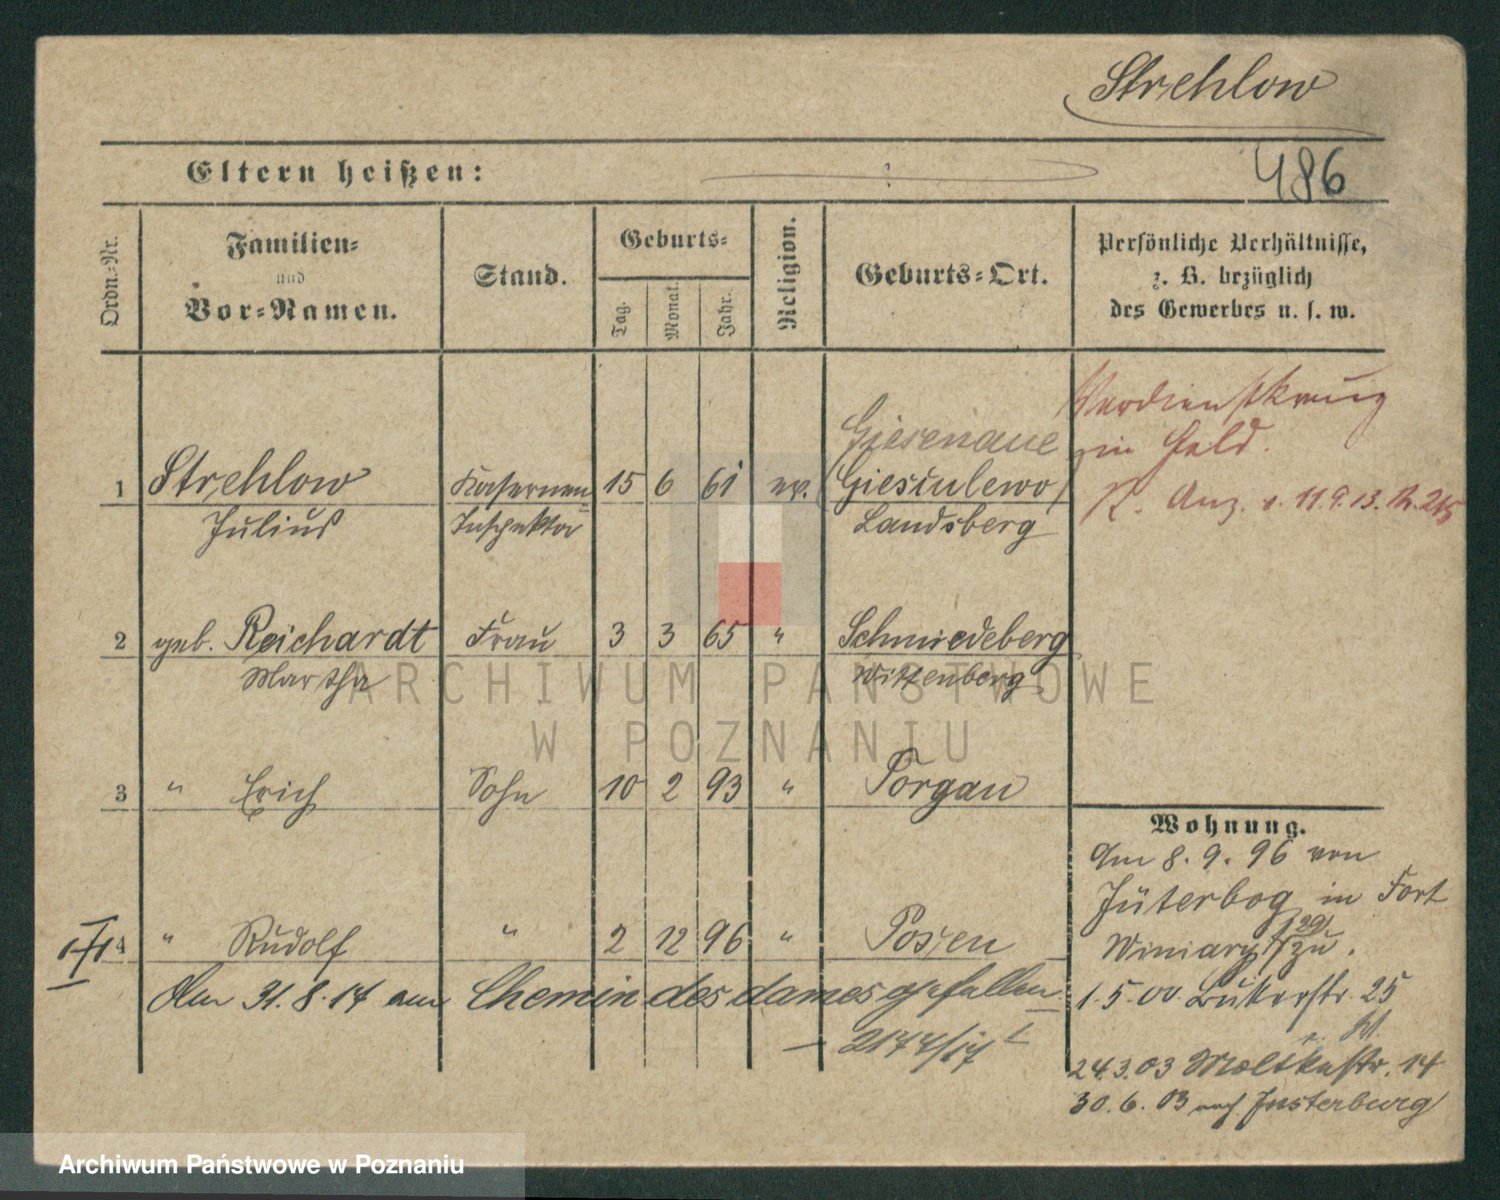 Strehlow
Eltern heißen:
486
Ordn.-Nr.
Familien-
und
Vor-Namen.
Stand.
Geburts-
Tag.
Monat.
Jahr.
Religion.
Geburts-Ort.
Persönliche Verhältnisse,
z. B. bezüglich
des Gewerbes u. s. w.
Verdienstkreuz
in Gold.
K. Anz. v. 11.9.13. N. 215
Giesenaue
1 Strehlow Kasernen 15 6 61 ev. (Giesculewo)
Julius Inspektor Landsberg
2 geb. Reichardt Frau 3 3 65 " Schmiedeberg
Martha Wittenberg
3 " Erich Sohn 10 2 93 " Torgau
4 " Rudolf " 2 12 96 " Posen
Am 31.8.17 am Chemin des dames gefallen
2177/17
Wohnung.
Am 8.9.96 von
Jüterbog in Fort
Winiary zu.
1.5.00 25
24.3.03 Moltkestr. 14
30.6.03 nach Insterburg
ARCHIWUM PAŃSTWOWE
W POZNANIU
Archiwum Państwowe w Poznaniu